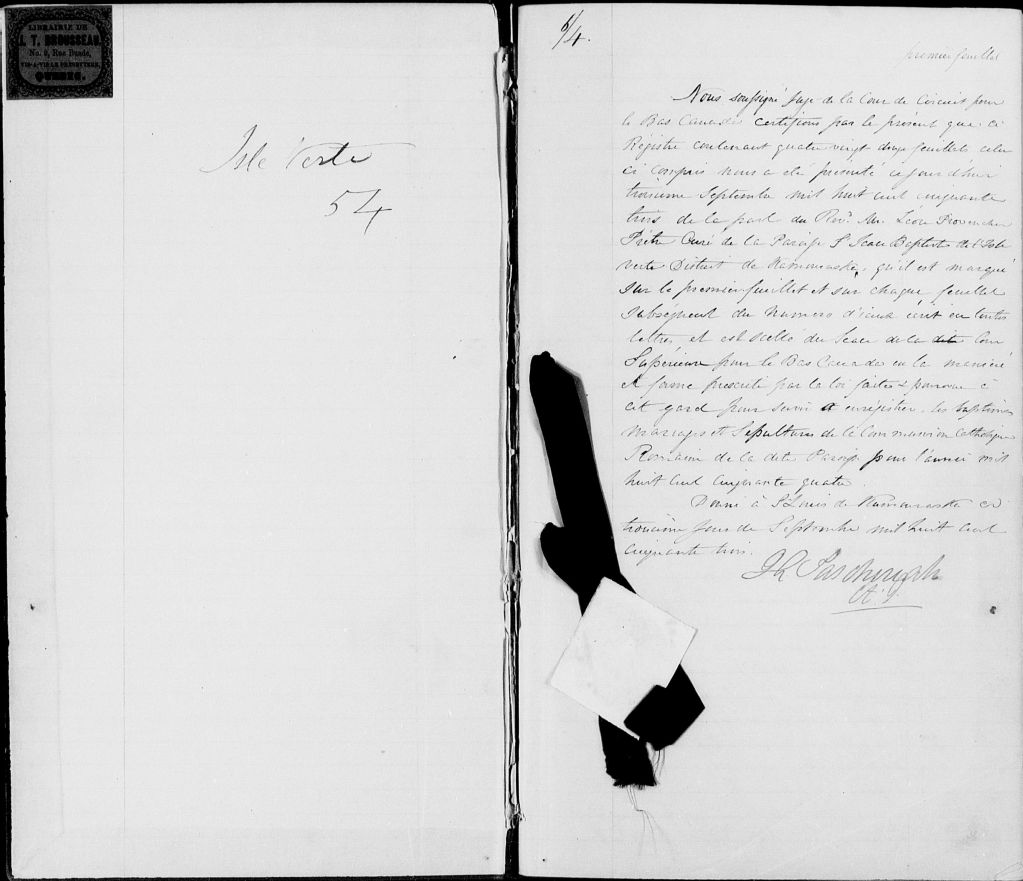 LIBRAIRIE DE
J. T. BROUSSEAU,
No. 9, Rue Buade,
VIS-A-VIS LE PRESBYTERE,
QUEBEC.
Isle Verte
54
1/4.
premier feuillet
Nous soussigné Juge de la Cour de Circuit pour
le Bas Canada certifions par le présent que ce
Registre contenant quatre vingt dix feuillets celui
ci compris nous a été présenté ce jourd'hui
troisième Septembre mil huit cent cinquante
trois de la part du Revd. Mr. Léon Provencher
Prêtre Curé de la Paroisse St Jean Baptiste de l'Isle
verte District de Kamouraska, qu'il est marqué
sur le premier feuillet et sur chaque feuillet
subséquent du Numéro d'iceux écrit en toutes
lettres, et est scellé du Sceau de la dite Cour
Supérieure pour le Bas Canada en la manière
et forme prescrite par la loi faite & pourvue à
cet gard pour servir à enrégistrer les baptêmes
mariages et Sépultures de la Communion Catholique
Romaine de la dite Paroisse pour l'année mil
huit cent cinquante quatre.
Donné à St Louis de Kamouraska ce
troisième jour de Septembre mil huit cent
cinquante trois.